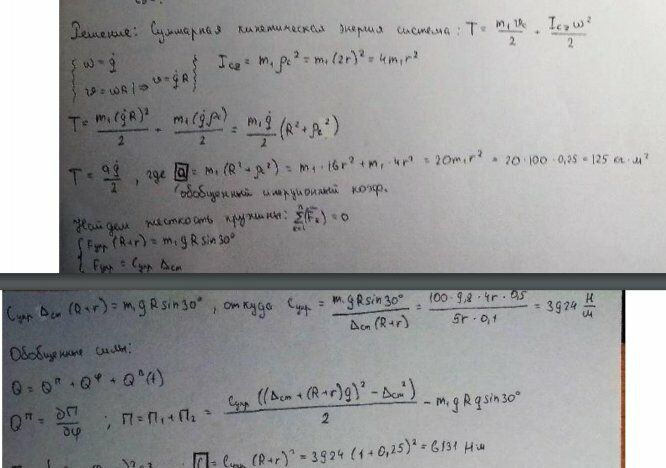 Решение: Суммарная кинетическая энергия система: T = m₁v_c/2 + I_cz ω²/2
{ ω = q̇
{ v = ωR | ⇒ v = q̇R } I_cz = m₁ρ_c² = m₁(2r)² = 4m₁r²
T = m₁(q̇R)²/2 + m₁(q̇ρ_c)/2 = m₁q̇/2 (R² + ρ_c²)
T = aq̇/2, где a = m₁(R² + ρ_c²) = m₁·16r² + m₁·4r² = 20m₁r² = 20·100·0,25 = 125 кг·м²
обобщенный инерционный коэф.
Найдем жесткость пружины: Σ(F̄ₖ) = 0
{ Fупр (R+r) = m₁gR sin30°
{ Fупр = Cупр Δст
Cупр Δст (R+r) = m₁gR sin30°, откуда Cупр = m₁gR sin30°/Δст(R+r) = 100·9,8·4r·0,5/5r·0,1 = 3924 Н/м
Обобщенные силы:
Q = Qᴨ + Qᵠ + Qᴨ(t)
Qᴨ = ∂П/∂φ ; П = П₁ + П₂ = Cупр ((Δст + (R+r)q)² − Δст²)/2 − m₁gRq sin30°
= Cупр (R+r)² = 3924 (1+0,25)² = 6131 Нм